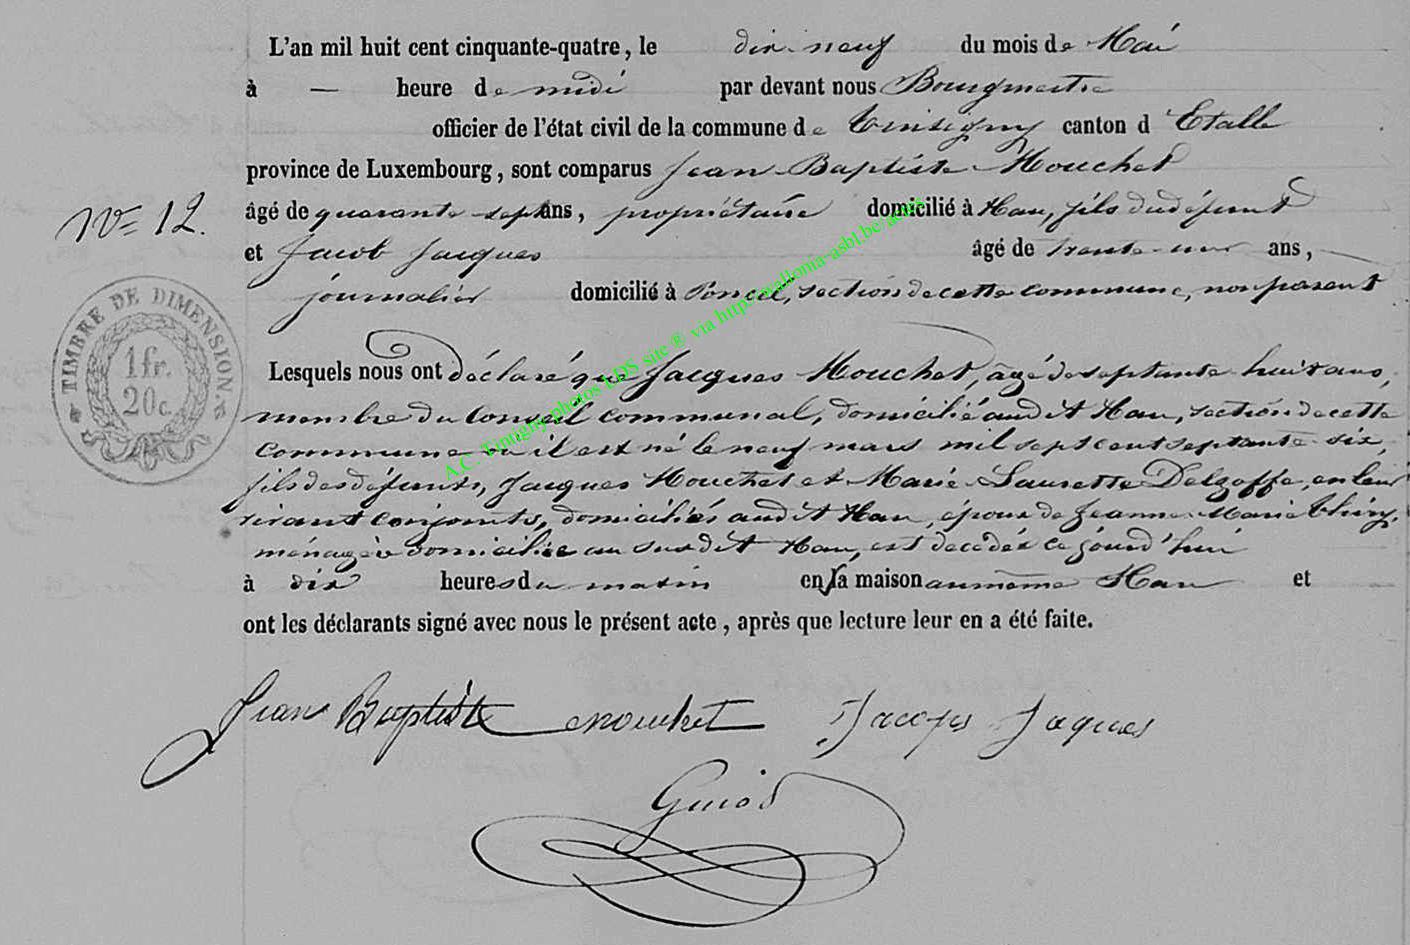 L'an mil huit cent cinquante-quatre, le dix-neuf du mois de Mai
à — heure de midi par devant nous Bourgmestre
officier de l'état civil de la commune de Tintigny canton d'Etalle
province de Luxembourg, sont comparus Jean Baptiste Mouchet
N° 12.
âgé de quarante-sept ans, propriétaire domicilié à Han, fils dudéfunt
et Jacob Jacques âgé de trente-un ans,
journalier domicilié à Poncel, section de cette commune, non parent
TIMBRE DE DIMENSION.
1 fr.
20 c.
Lesquels nous ont déclaré que Jacques Mouchet, âgé de septante-huit ans,
membre du Conseil communal, domicilié audit Han, section de cette
commune où il est né le neuf mars mil sept cent septante-six,
fils des défunts, Jacques Mouchet et Marie-Laurette Delzoffe, en leur
vivant conjoints, domiciliés audit Han, époux de Jeanne-Marie Thiry,
ménagère domiciliée au susdit Han, est décédé ce jourd'hui
à dix heures du matin en sa maison au même Han et
ont les déclarants signé avec nous le présent acte, après que lecture leur en a été faite.
Jean Baptiste Mouchet Jacops Jaques
Guiot
A.C. Tintigny photos LDS site ® via http://wallonia-asbl.be/actes